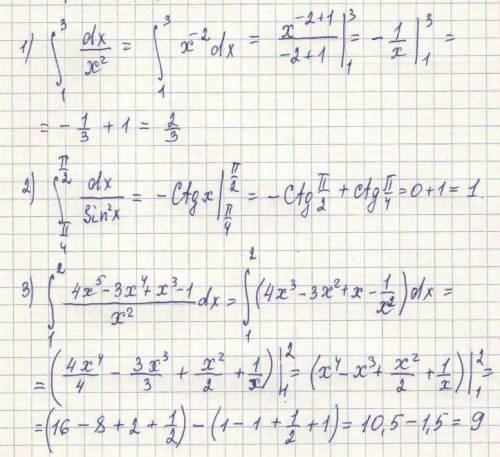 1) ∫₁³ dx/x² = ∫₁³ x⁻² dx = x⁻²⁺¹/(-2+1) |₁³ = - 1/x |₁³ =
= - 1/3 + 1 = 2/3
2) ∫_{π/4}^{π/2} dx/Sin²x = -Ctg x |_{π/4}^{π/2} = -Ctg π/2 + Ctg π/4 = 0+1 = 1.
3) ∫₁² (4x⁵-3x⁴+x³-1)/x² dx = ∫₁² (4x³-3x²+x-1/x²) dx =
= (4x⁴/4 - 3x³/3 + x²/2 + 1/x) |₁² = (x⁴-x³+x²/2+1/x) |₁² =
= (16-8+2+1/2) - (1-1+1/2+1) = 10,5-1,5 = 9